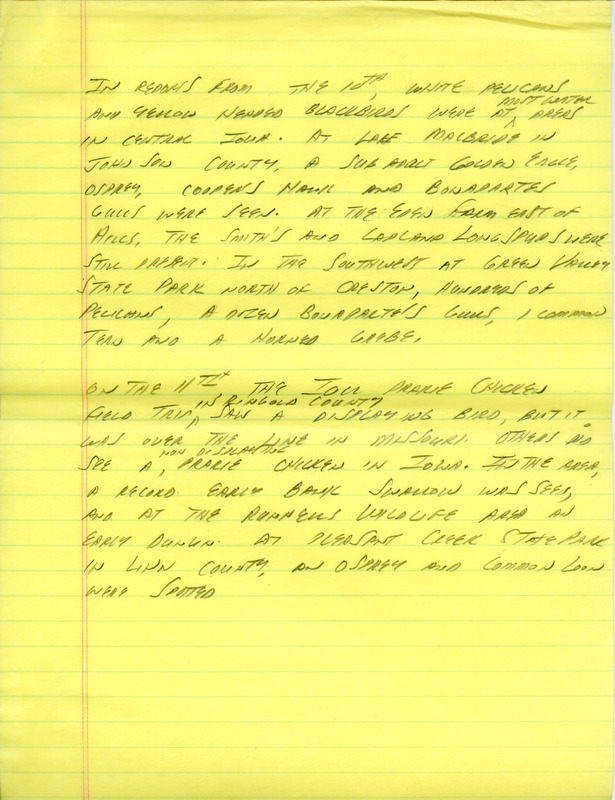 IN REPORTS FROM THE 10TH, WHITE PELICANS
AND YELLOW HEADED BLACKBIRDS WERE AT MOST WATER AREAS
IN CENTRAL IOWA. AT LAKE MACBRIDE IN
JOHNSON COUNTY, A SUB ADULT GOLDEN EAGLE,
OSPREY, COOPER'S HAWK AND BONAPARTES
GULLS WERE SEEN. AT THE EDEN FARM EAST OF
HILLS, THE SMITH'S AND LAPLAND LONGSPURS WERE
STILL PRESENT. IN THE SOUTHWEST AT GREEN VALLEY
STATE PARK NORTH OF CRESTON, HUNDREDS OF
PELICANS, A DOZEN BONAPARTE'S GULLS, 1 COMMON
TERN AND A HORNED GREBE.
ON THE 11TH THE IOU PRARIE CHICKEN
FIELD TRIP IN RINGOLD COUNTY SAW A DISPLAYING BIRD, BUT IT
WAS OVER THE LINE IN MISSOURI. OTHERS DID
SEE A NON DISPLAYING PRARIE CHICKEN IN IOWA. IN THE AREA,
A RECORD EARLY BANK SWALLOW WAS SEEN,
AND AT THE RUNNELLS WILDLIFE AREA AN
EARLY DUNLIN. AT PLEASANT CREEK STATE PARK
IN LINN COUNTY, AN OSPREY AND COMMON LOON
WERE SPOTTED